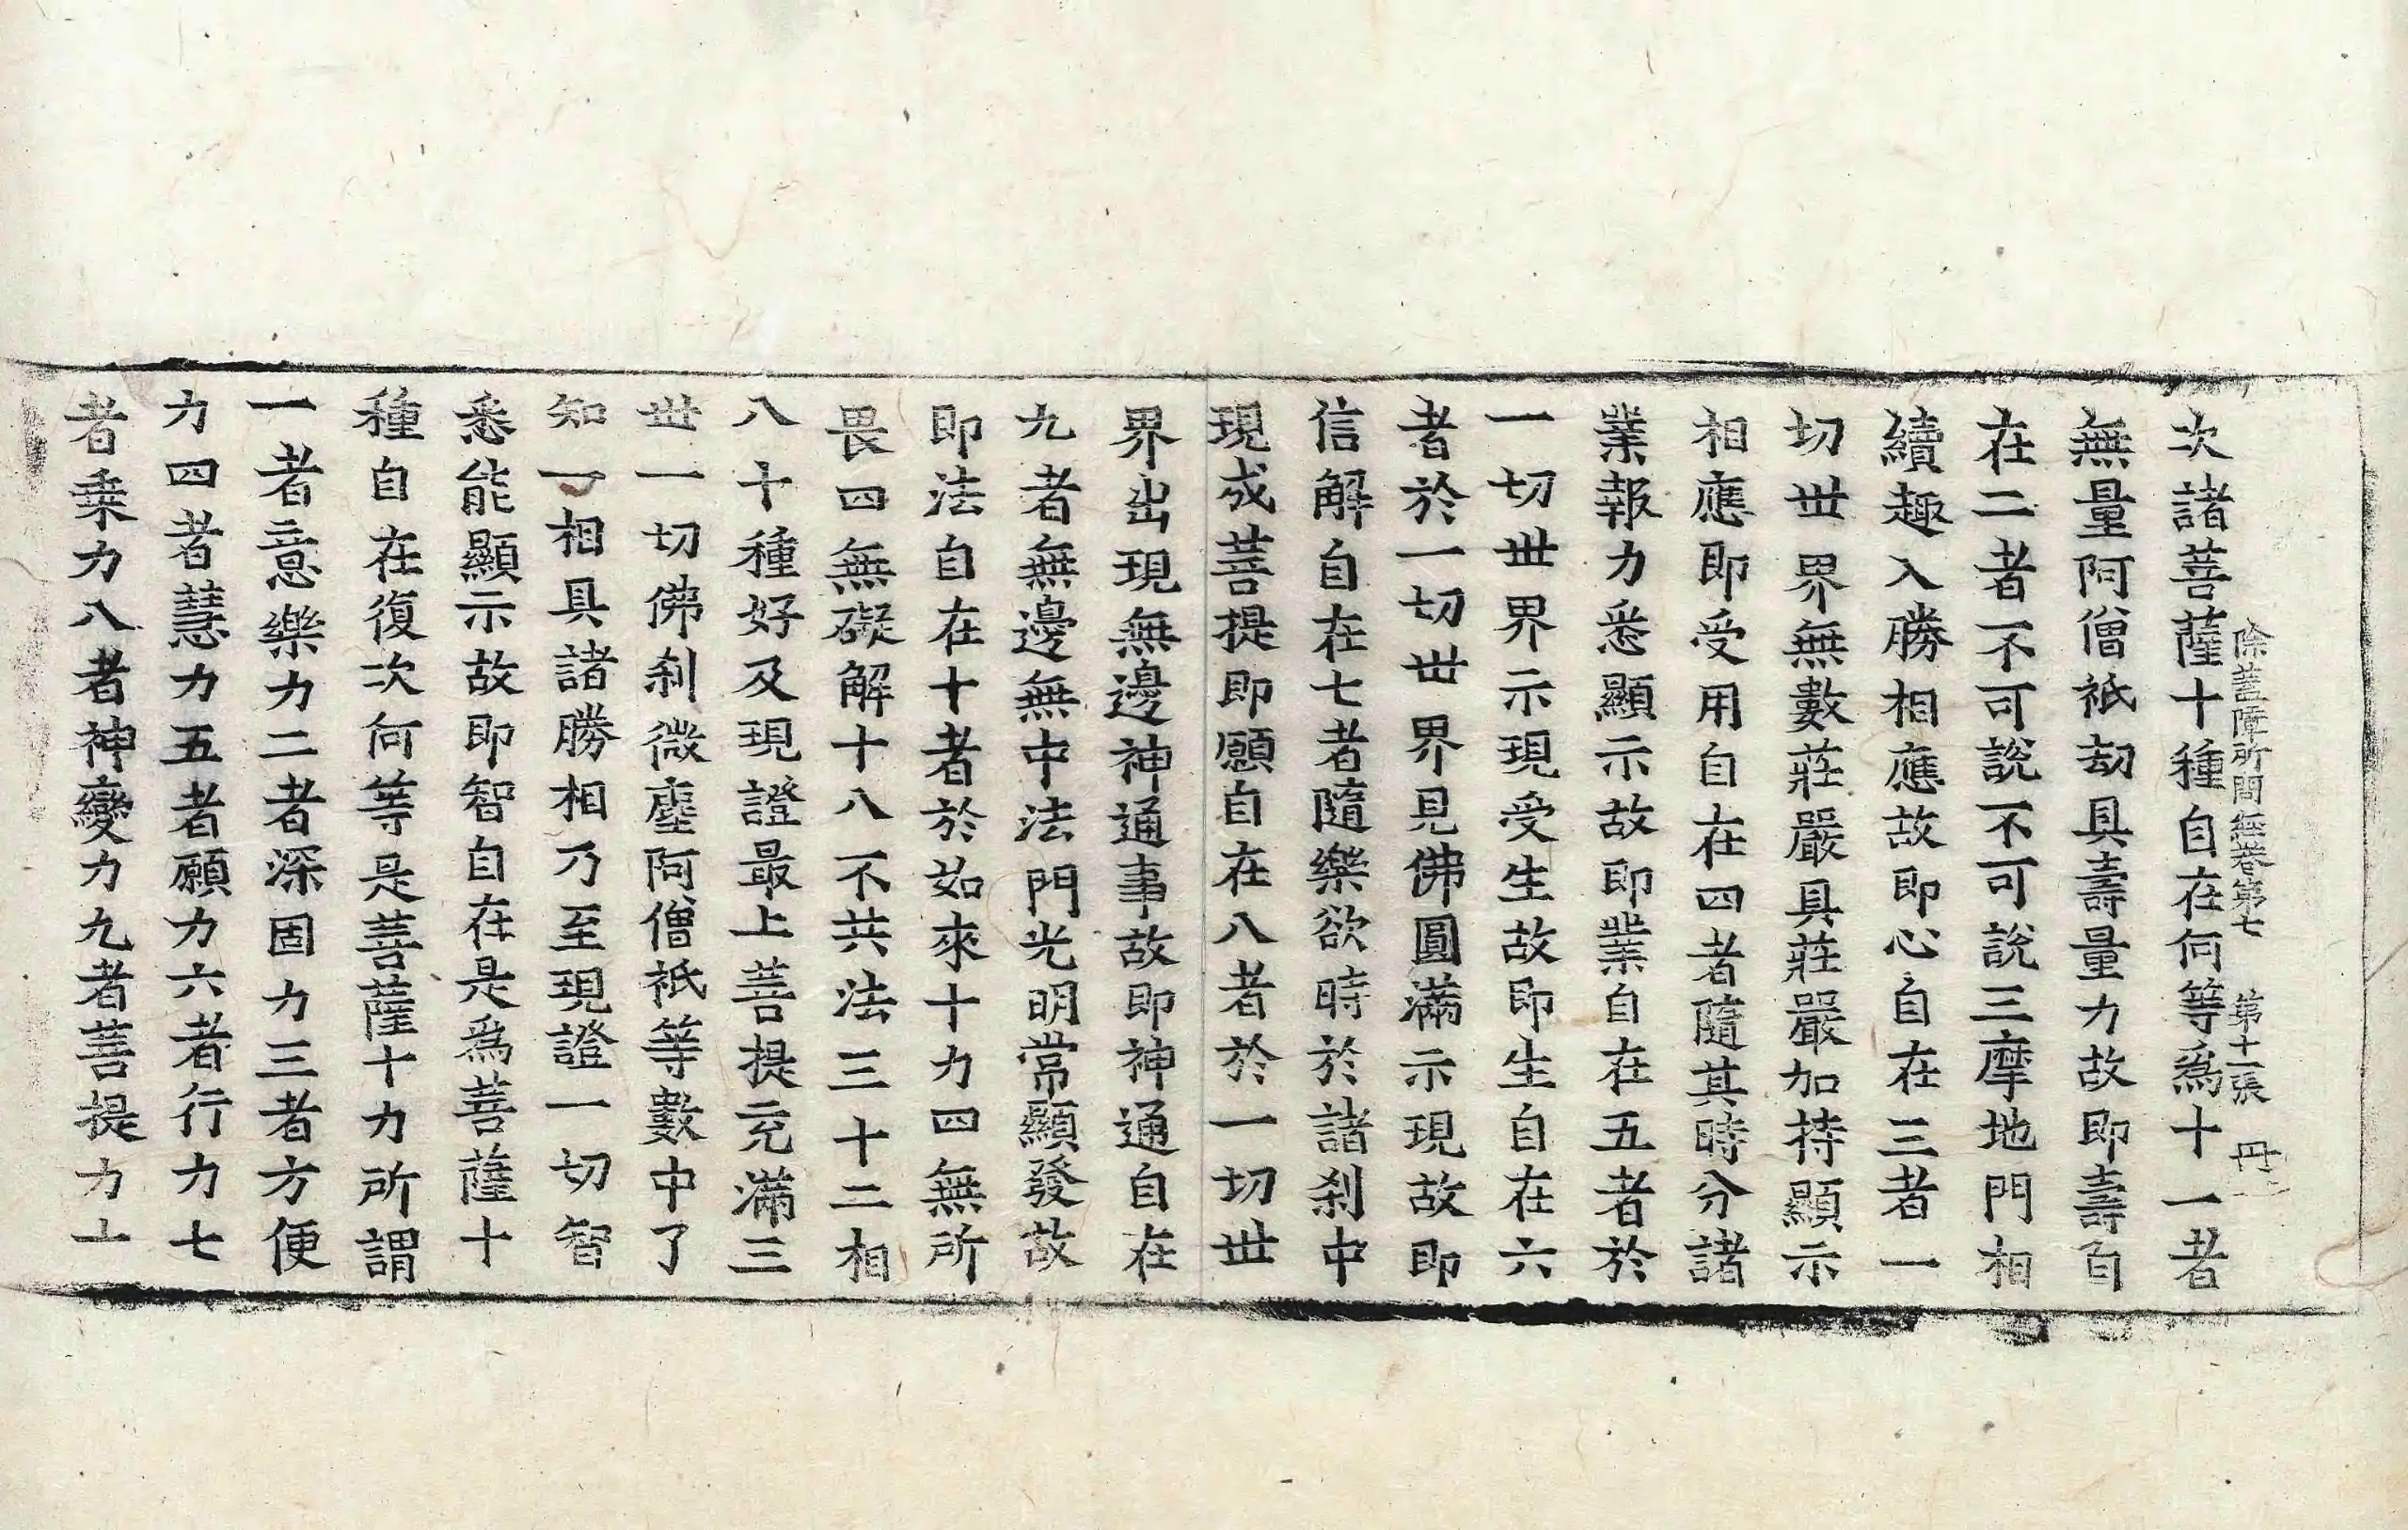 除蓋障所問經卷第七 第十一張 丹
次諸菩薩十種自在何等爲十一者
無量阿僧祇劫具壽量力故即壽自
在二者不可說不可說三摩地門相
續趣入勝相應故即心自在三者一
切世界無數莊嚴具莊嚴加持顯示
相應即受用自在四者隨其時分諸
業報力悉顯示故即業自在五者於
一切世界示現受生故即生自在六
者於一切世界見佛圓滿示現故即
信解自在七者隨樂欲時於諸刹中
現成菩提即願自在八者於一切世
界出現無邊神通事故即神通自在
九者無邊無中法門光明常顯發故
即法自在十者於如來十力四無所
畏四無礙解十八不共法三十二相
八十種好及現證最上菩提充滿三
世一切佛刹微塵阿僧祇等數中了
知一相具諸勝相乃至現證一切智
悉能顯示故即智自在是爲菩薩十
種自在復次何等是菩薩十力所謂
一者意樂力二者深固力三者方便
力四者慧力五者願力六者行力七
者乗力八者神變力九者菩提力十